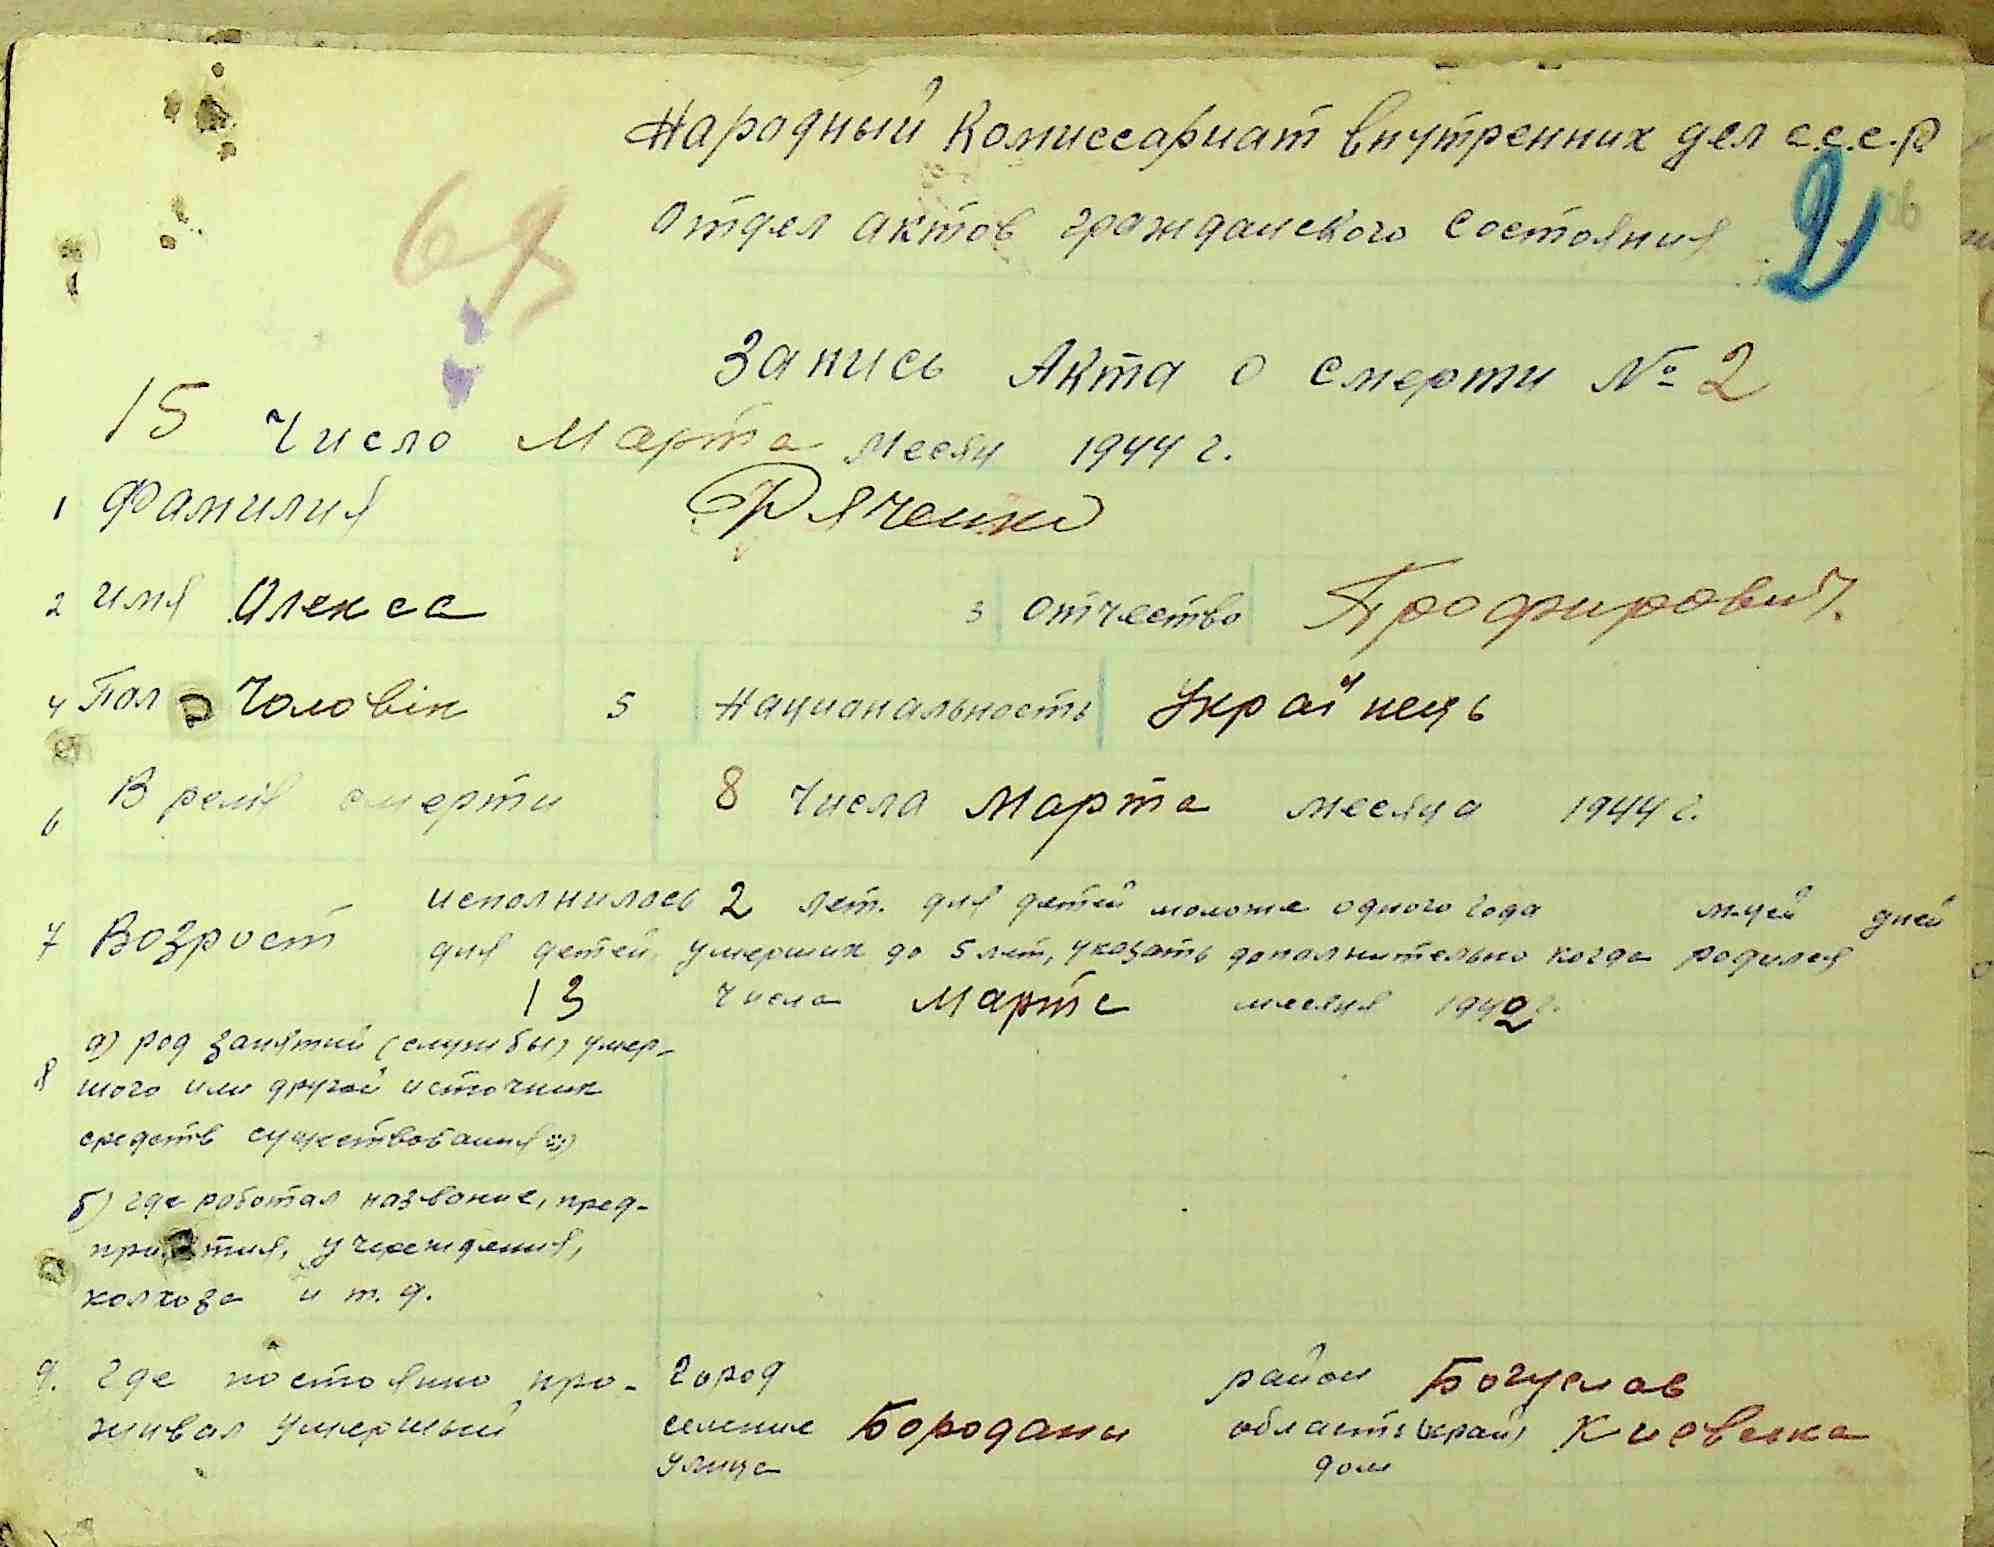 Народный Комиссариат внутренних дел С.С.С.Р.
2
Отдел актов гражданского состояния
Запись Акта о смерти № 2
15 Число Марта месяц 1944 г.
1 Фамилия Дяченко
2 имя Олекса 3 отчество Профирович.
4 Пол Чоловік 5 Национальность Українець
6 Время смерти 8 числа Марта месяца 1944 г.
исполнилось 2 лет. для детей моложе одного года м-цей дней
7 Возраст для детей, умерших до 5 лет, указать дополнительно когда родился
13 числа Марта месяца 1942 г.
8 а) род занятий (службы) умер-
шого или другой источник
средств существования
б) где работал название, пред-
приятия, учреждения,
колхоза и т. д.
9. Где постоянно про- город район Богуслав
живал умерший селение Бородани область (край) Киевска
улица дом